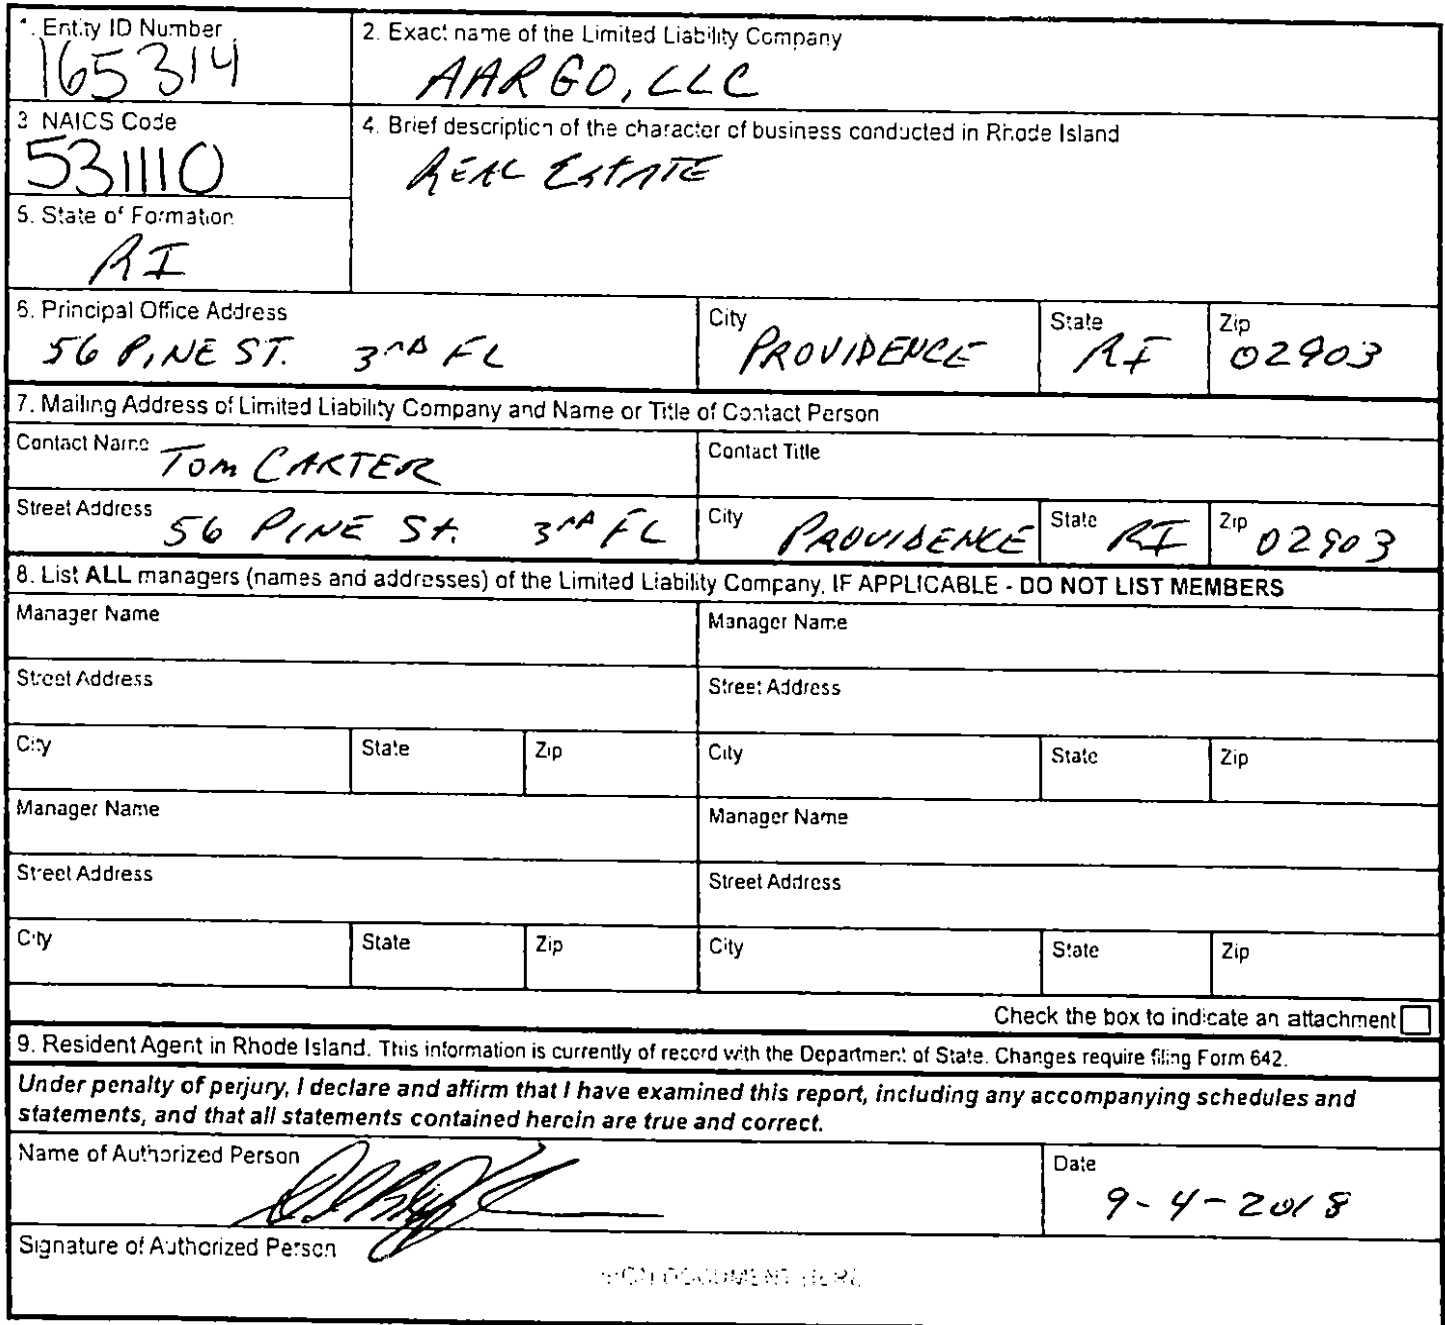 1. Entity ID Number
165314
2. Exact name of the Limited Liability Company
AARGO, LLC
3. NAICS Code
531110
4. Brief description of the character of business conducted in Rhode Island
REAL ESTATE
5. State of Formation
RI
6. Principal Office Address
56 PINE ST. 3RD FL
City
PROVIDENCE
State
RI
Zip
02903
7. Mailing Address of Limited Liability Company and Name or Title of Contact Person
Contact Name TOM CARTER
Contact Title
Street Address 56 PINE St. 3RD FL
City PROVIDENCE
State RI
Zip 02903
8. List ALL managers (names and addresses) of the Limited Liability Company, IF APPLICABLE - DO NOT LIST MEMBERS
Manager Name
Manager Name
Street Address
Street Address
City State Zip
City State Zip
Manager Name
Manager Name
Street Address
Street Address
City State Zip
City State Zip
Check the box to indicate an attachment
9. Resident Agent in Rhode Island. This information is currently of record with the Department of State. Changes require filing Form 642.
Under penalty of perjury, I declare and affirm that I have examined this report, including any accompanying schedules and
statements, and that all statements contained herein are true and correct.
Name of Authorized Person
Date
9-4-2018
Signature of Authorized Person
SIGN DOCUMENT HERE